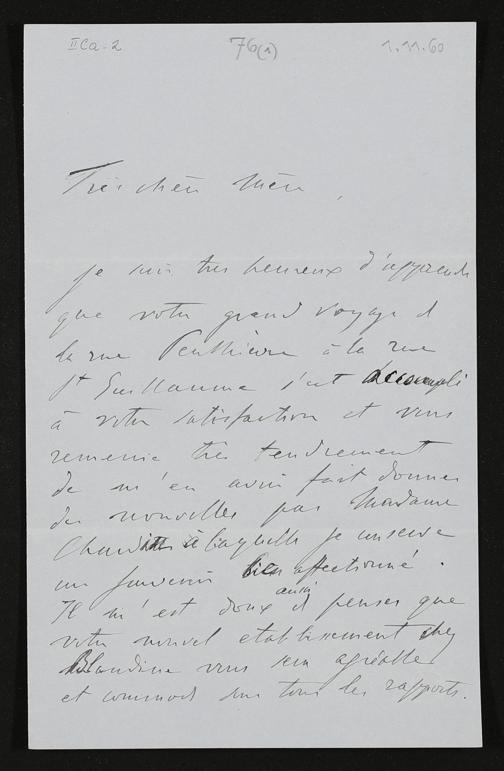 IICa-2 76(1) 1.11.60
Très chère Mère,
je suis très heureux d'apprendre
que votre grand voyage d
la rue Penthièvre à la rue
St Guillaume s'est accompli
à votre satisfaction et vous
remercie très tendrement
de m'en avoir fait donner
des nouvelles par Madame
à laquelle je conserve
un souvenir bien affectionné.
Il m'est doux aussi d penser que
votre nouvel etablissement chez
Blandine vous sera agréable
et commode sur tous les rapports.